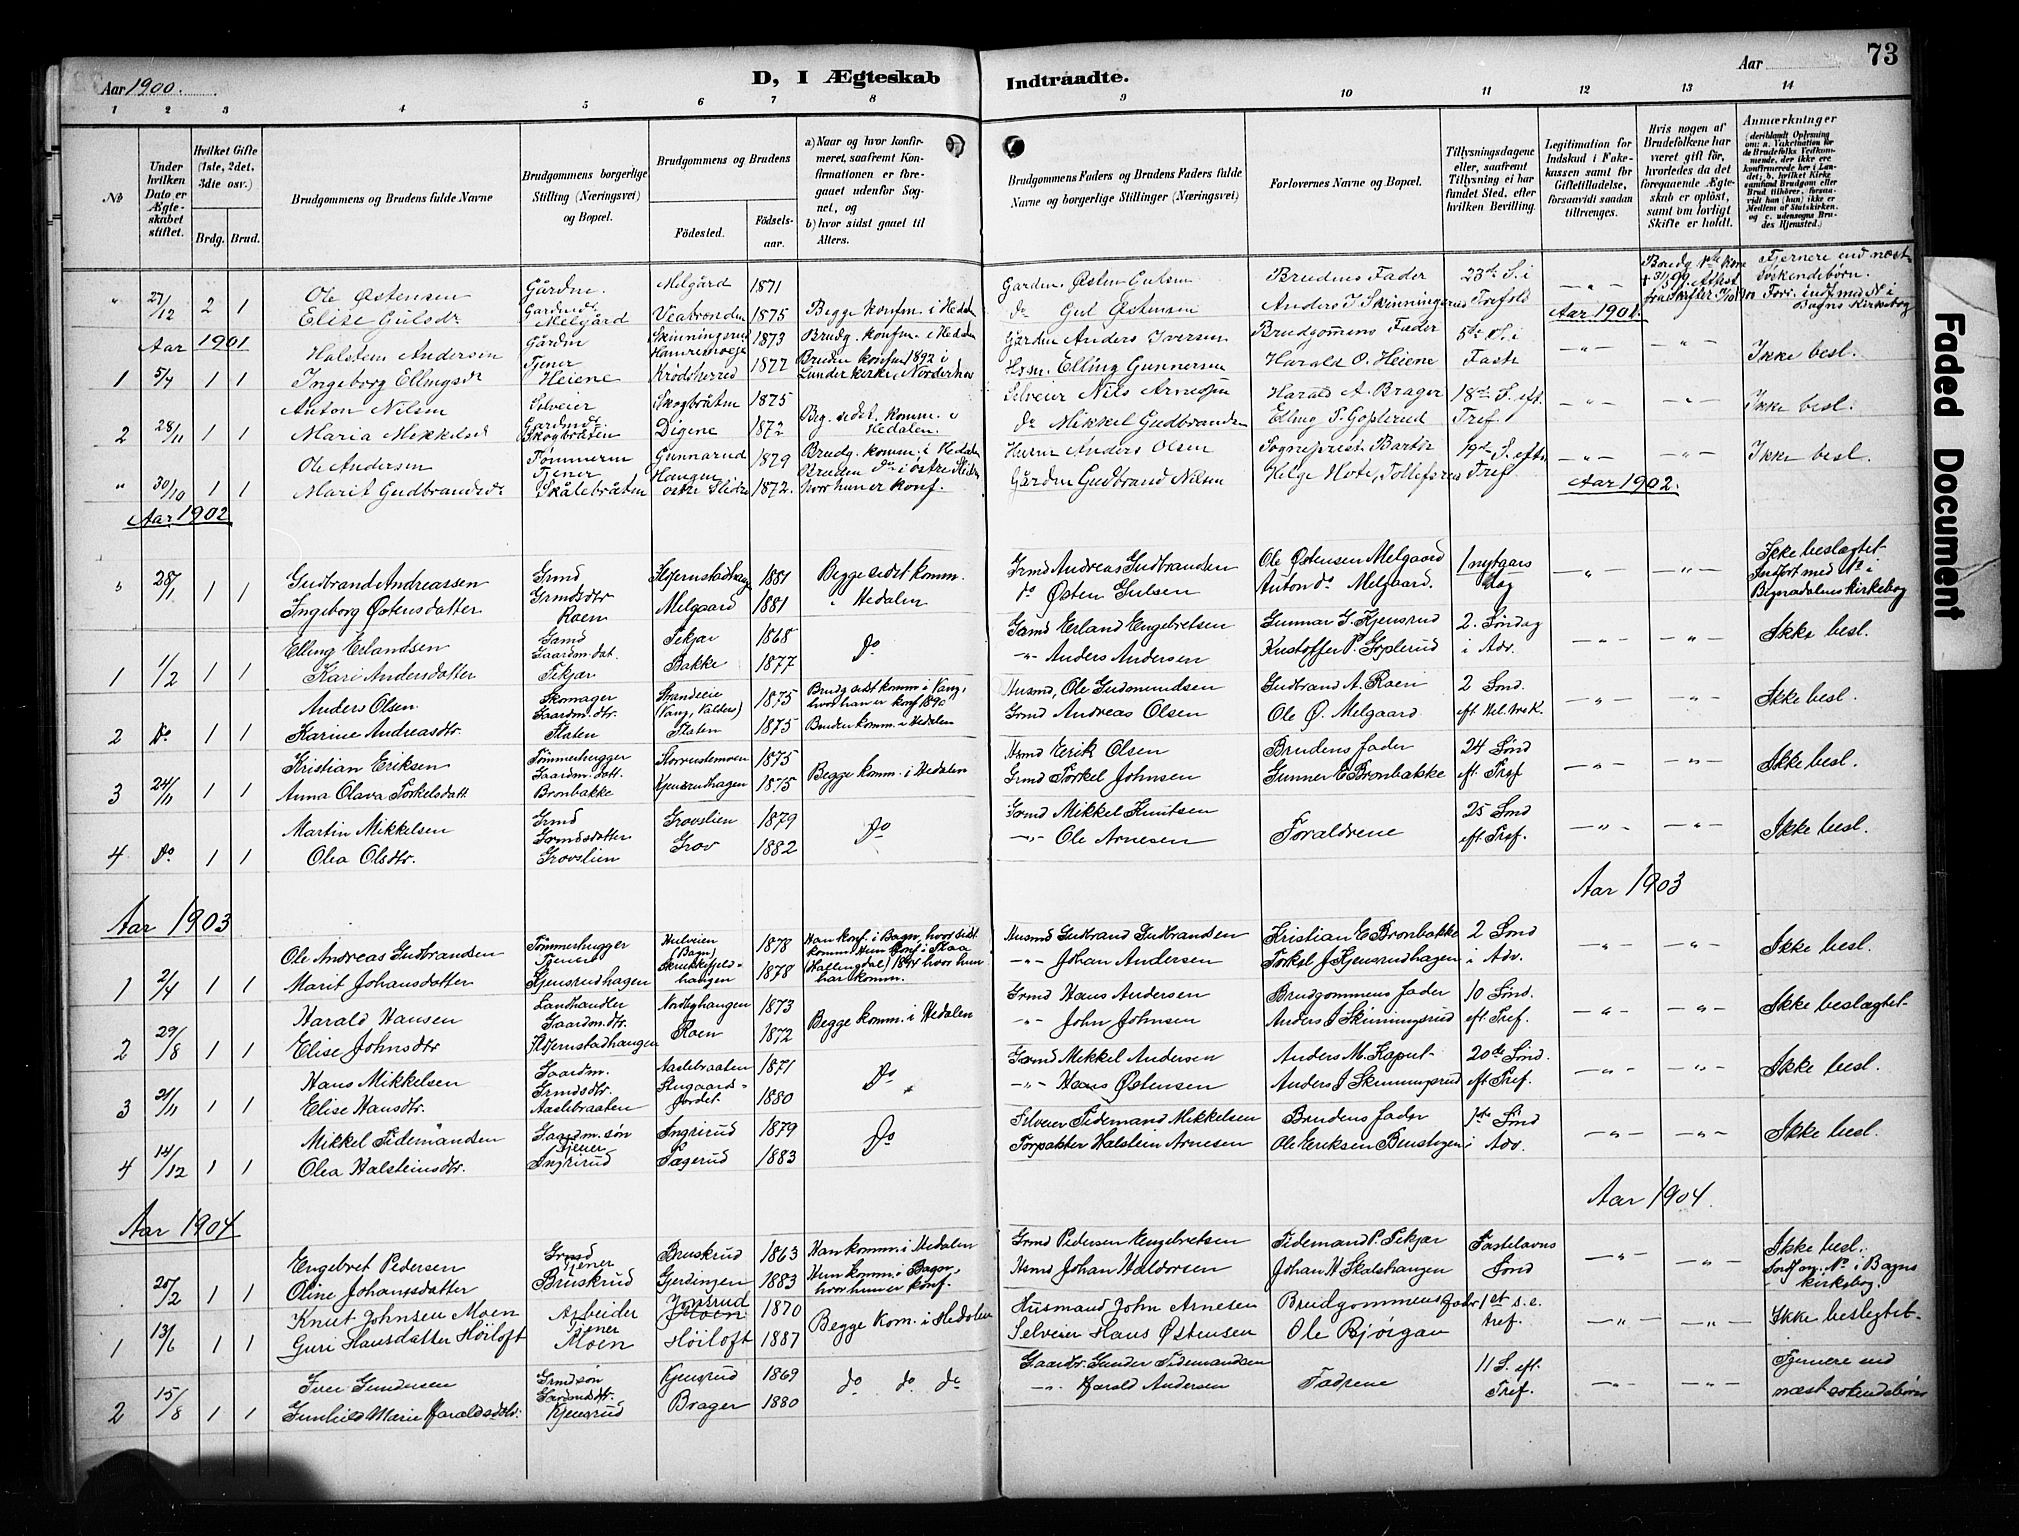 Aar 1900.
D, I Ægteskab Indtraadte.
Aar
73
1 2 3 4 5 6 7 8 9 10 11 12 13 14
№
Under hvilken Dato er Ægteskabet stiftet.
Hvilket Gifte (1ste, 2det, 3die osv.)
Brdg. Brud.
Brudgommens og Brudens fulde Navne
Brudgommens borgerlige Stilling (Næringsvei) og Bopæl.
Brudgommens og Brudens
Fødested. Fødselsaar.
a) Naar og hvor konfirmeret, saafremt Konfirmationen er foregaaet udenfor Sognet, og
b) hvor sidst gaaet til Alters.
Brudgommens Faders og Brudens Faders fulde Navne og borgerlige Stillinger (Næringsvei)
Forlovernes Navne og Bopæl.
Tillysningsdagene eller, saafremt Tillysning ei har fundet Sted, efter hvilken Bevilling.
Legitimation for Indskud i Fakkassen samt for Giftetilladelse, forsaavidt saadan tiltrænges.
Hvis nogen af Brudefolkene har været gift før, hvorledes da det foregaaende Ægteskab er opløst, samt om lovligt Skifte er holdt.
Anmærkninger
" 27/12 2 1 Ole Østensen Gårdm. Melgård 1871 Gårdm. Østen Gulsen Brudens Fader 23de S. i
Elise Gulsdr Gårdmdr Melgård Veabraaden 1875 Begge konfm. i Hedalen do Gul Østensen Anders I. Skinningsrud Trefold -"- Fjernere end næst Søskendebørn.
Aar 1901 Aar 1901.
1 5/4 1 1 Halstein Andersen Gårdm Skinningsrud 1873 Brudg. konfm. i Hedalen Gårdm Anders Iversen Brudgommens Fader 5te S. i -"- -"- Ikke besl.
Ingeborg Ellingsdr Tjener Heiene Krødsherred 1877 Bruden konfm 1892 i Hsm. Elling Gunnersen Harald O. Heiene Faste
2 28/11 1 1 Anton Nilsen Selveier Skogbråten 1875 Beg. sidst komm. i Selveier Nils Arnesen Harald A. Brager 18de S. eft. -"- -"- Ikke besl.
Maria Mikkelsd Gårdmdr. Skogbråten Digene 1872 Hedalen. do Mikkel Gudbrandsen Elling P. Goplerud Tref.
" 30/10 1 1 Ole Andersen Tømmerm Gunnarud 1879 Brudg. komm. i Hedalen Husm Anders Olsen Sogneprest. 19de S. eft. -"- -"- Ikke besl.
Marit Gudbrandsdr Tjener Skålebråten Haugen østre Slidre 1872. Bruden do i østre Slidre hvor hun er konf. Gårdm Gudbrand Nilsen Helge Tref
Aar 1902 Aar 1902.
" 28/1 1 1 Gudbrand Andreassen Grmd 1881 Begge sidst komm. Grmd Andreas Gudbrandsen Ole Østensen Melgaard 1 nytaars -"- -"- Ikke beslægtet
Ingeborg Østensdatter Grmdsdtr Roen Melgaard 1881 i Hedalen do Østen Gulsen Anton do Melgaard. dag Indført med № i Begnadalens kirkebog
1 1/2 1 1 Elling Erlandsen Gamd Tekjær 1868 do Gamd Erland Engebretsen Gunnar G. Kjensrud 2. Søndag -"- -"- Ikke besl.
Kari Andersdatter Gaardm. dat. Tekjær Bakke 1877 -"- Anders Andersen Kristoffer P. Goplerud i Adv.
2 do 1 1 Anders Olsen Skomager Strandeeie (Vang, Valders) 1875 Brudg sidst komm i Vang, hvor han er konf 1890 Husmd, Ole Gudmundsen Gudbrand A. Roen 2 Sønd. -"- -"- Ikke besl.
Karine Andreasdtr. Gaardm.dtr. Flaten Flaten 1875 Bruden komm. i Hedalen Grmd Andreas Olsen Ole Ø. Melgaard
3 24/11 1 1 Kristian Eriksen Tømmerhugger Storrustemoen 1875 Begge komm. i Hedalen Hsmd Erik Olsen Brudens fader 24 Sønd -"- -"- Ikke besl.
Anna Olava Torkelsdatt. Gaardm. datt. Bronbakke Kjensrudhagen 1875 Grmd Torkel Johnsen Gunner E Bronbakke eft. Tref
4 do 1 1 Martin Mikkelsen Grmd Grovslien 1879 do Gamd Mikkel Knutsen Foraldrene 25 Sønd -"- -"- Ikke besl.
Olea Olsdtr. Grmdsdatter Grovslien Grov 1882 -"- Ole Arnesen eft. Tref.
Aar 1903 Aar 1903
1 2/4 1 1 Ole Andreas Gudbrandsen Tømmerhugger Hulveien (Bagn) 1878 Han konf. i Bagn, hvor sidst komm. Hun konf. i Flaa Husmd Gudbrand Gudbrandsen Kristian E Bronbakke 2 Sønd -"- -"- Ikke besl.
Marit Johansdatter Tjener Kjensrudhagen 1878 (Hallingdal) 1894 hvor hun har komm. -"- Johan Andersen Torkel J Kjensrudhagen i Adv.
2 29/8 1 1 Harald Hansen Landhandler Nordbyhaugen 1873 Begge komm. i Hedalen Grmd Hans Andersen Brudgommens fader 10 Sønd. -"- -"- Ikke beslægtet
Elise Johnsdtr Gaardm.dtr. Roen 1872 -"- John Johnsen Anders J Skinningsrud eft Tref.
3 21/11 1 1 Hans Mikkelsen Gaardm. Aaslebraaten 1871 do Gamd Mikkel Andersen Anders M. Kaput 20de Sønd. -"- -"- Ikke besl.
Elise Hansdtr. Grmdsdtr. Aaslebraaten Stugaardsjordet. 1880 -"- Hans Østensen Anders J Skinningsrud eft Tref.
4 14/12 1 1 Mikkel Tidemandsen Gaardm.søn Ingrirud 1879 do Selveier Tidemand Mikkelsen Brudens fader 1ste Sønd -"- -"- Ikke besl.
Olea Halsteinsdtr. Tjener Ingrirud Fagerud 1883 Forpakter Halstein Arnesen Ole Eriksen i Adv.
Aar 1904 Aar 1904.
20/2 1 1 Engebret Pedersen Grmd Bruskrud 1863 Han komm. i Hedalen Grmd Pedersen Engebretsen Tidemand P. Tekjær Fastelavns -"- -"- Ikke besl.
Oline Johansdatter Tjener Bruskrud Gjerdingen 1883 Hun komm. i Bagn, hvor hun er konf. Hsmd Johan Haldorsen Johan H Skalshaugen Sønd Indf. og № i Bagns kirkebog
1 13/6 1 1 Knut Johnsen Moen Arbeider Jonsrud 1870 Begge kom. i Hedalen Husmand John Arnesen Brudgommens fader 1st s. e. -"- -"- Ikke beslegtet
Guri Hansdatter Høiloft Tjener Moen Høiloft 1887 Selveier Hans Østensen Ole Bjørgan tref.
2 15/8 1 1 Iver Gundersen Grmdsøn Kjensrud 1869 do do do Gaardbr. Gunder Tidemandsen Fædrene 11 S. eft. -"- -"- Fjernere end
Gunhild Marie Haraldsdotr. Gaardmdtr. Kjensrud Brager 1880 -"- Harald Andersen Tref. næstsøskendebørn
Faded Document